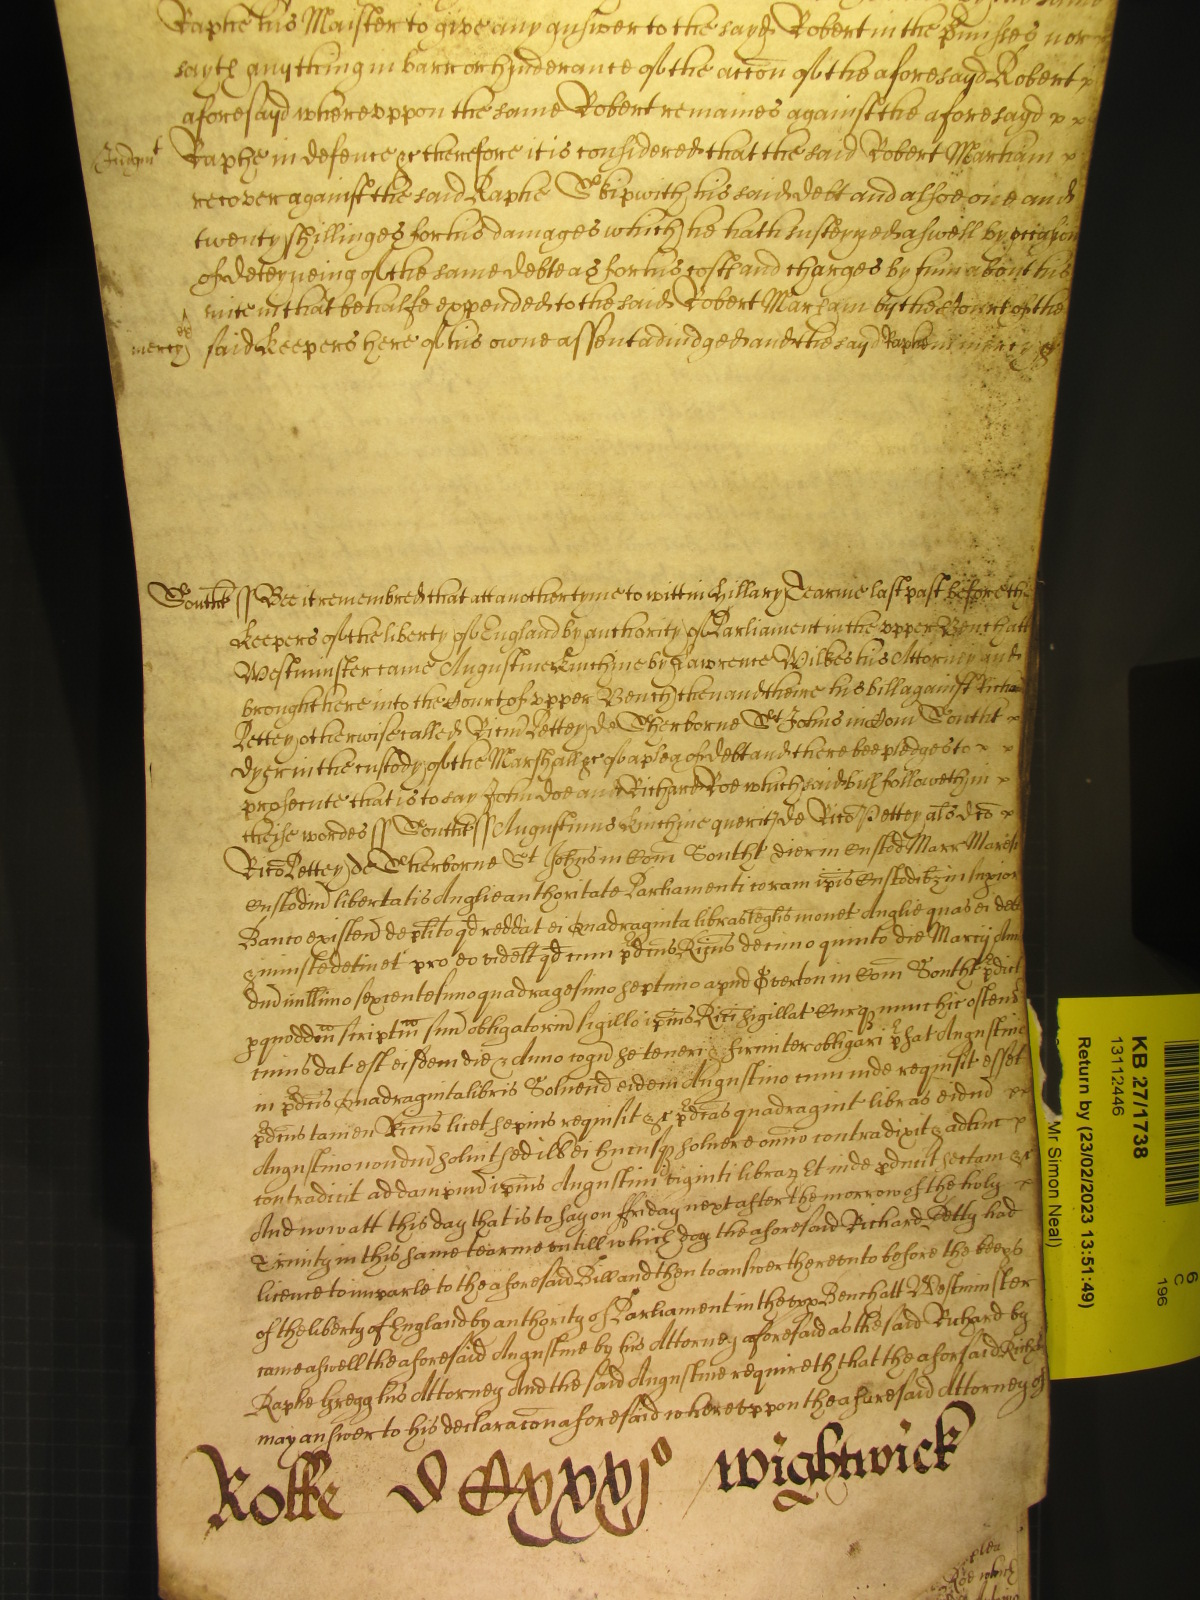 Raphe his Maister to give any answer to the sayd Robert in the p̱misses nor
sayth anything in barr or hinderance of the accõn of the aforesayd Robert x
aforesayd whereuppon the same Robert remaines against the aforesayd x x
Judgmt
Raphe in defence &c therefore it is considered that the said Robert Marham x
recover against the said Raphe Skipwith his said debt and alsoe one and
twenty shillinges for his damages which he hath susteyned aswell by occasion
of deteyneing of the same debte as for his costs and charges by him about his
suite in that behalfe expended to the said Robert Marham by the Court of the
mercy
said keepers here of his owne assent adiudged and the sayd Raphe in mercy &c
Southt ss Bee it remembred that att another tyme to witt in Hillary Tearme last past before the
keepers of the liberty of England by authority of Parliament in the upper Bench att
Westminster came Augustine Kinchine by Lawrence Wilkes his Attorney and
brought here into the Court of upper Bench then and theire his bill against Richard
Pettey otherwise called Ricũ Pettey de Sherborne St Johns in Com Southt x
dyer in the custody of the Marshall &c of a plea of debt and there bee pledges to x x
prosecute that is to say John Doe and Richard Roe which said bill followeth in x
theise wordes ss Southt ss Augustinus Kinchine querit de Ricõ Pettey als dcõ x
Ricõ Pettey de Sherborne St Johns in Com Southt dier in Custod Marr Maresc
Custodm̃ libertatis Anglie authoritate Parliamenti coram ip̃is Custodibz in Superior
Banco existen̄ de pl̃ito qd̃ reddat ei quadraginta libras leg̃lis monet Anglie quas ei debet
& iniuste detinet pro eo videl̃t qd̃ cum p̱dc̃us Ric̃us decimo quinto die Marcij Ann
dñi millimo sexcentesimo quadragesimo septimo apud Overton in Com Southt p̱dict
p quoddm̃ scriptũ suũ obligatoriũ sigillo ip̃ius Ric̃i sigillat Curq̱ nunc hic ostens
cuius dat est eisdem die & Anno cogñ se teneri & firmiter obligari p̱fat Augustine
in p̱dc̃is quadraginta libris Solvend eidem Augustino cum inde requisit esset
p̱dc̃us tamen Ric̃us licet sepius requisit &c p̱dc̃as quadragint libras eidm̄ x x
Augustino nondũ solvit sed ill̃ ei hucusq̱ solvere om̃io contradixit & adhuc x
contradicit ad dampnũ ip̃ius Augustini viginti librar Et inde p̱ducit sectam &c
And now att this day that is to say on ffriday next after the morrow of the holy x
Trinity in this same tearme untill which day the aforesaid Richard Petty had
licence to imparle to the aforesaid Bill and then to answer thereunto before the keeps
of the liberty of England by authority of Parliament in the upp Bench att Westminster
came aswell the aforesaid Augustine by his Attorney aforesaid as the said Richard by
Raphe Gregg his Attorney And the said Augustine requireth that the aforsaid Richd
may answer to his declaracõn aforesaid whereuppon the aforesaid Attorney of
Rolle DCxxxjo Wightwick
plea
Roe which
KB 27/1738
13112446
Return by (23/02/2023 13:51:49)
Mr Simon Neal)
6
C
196